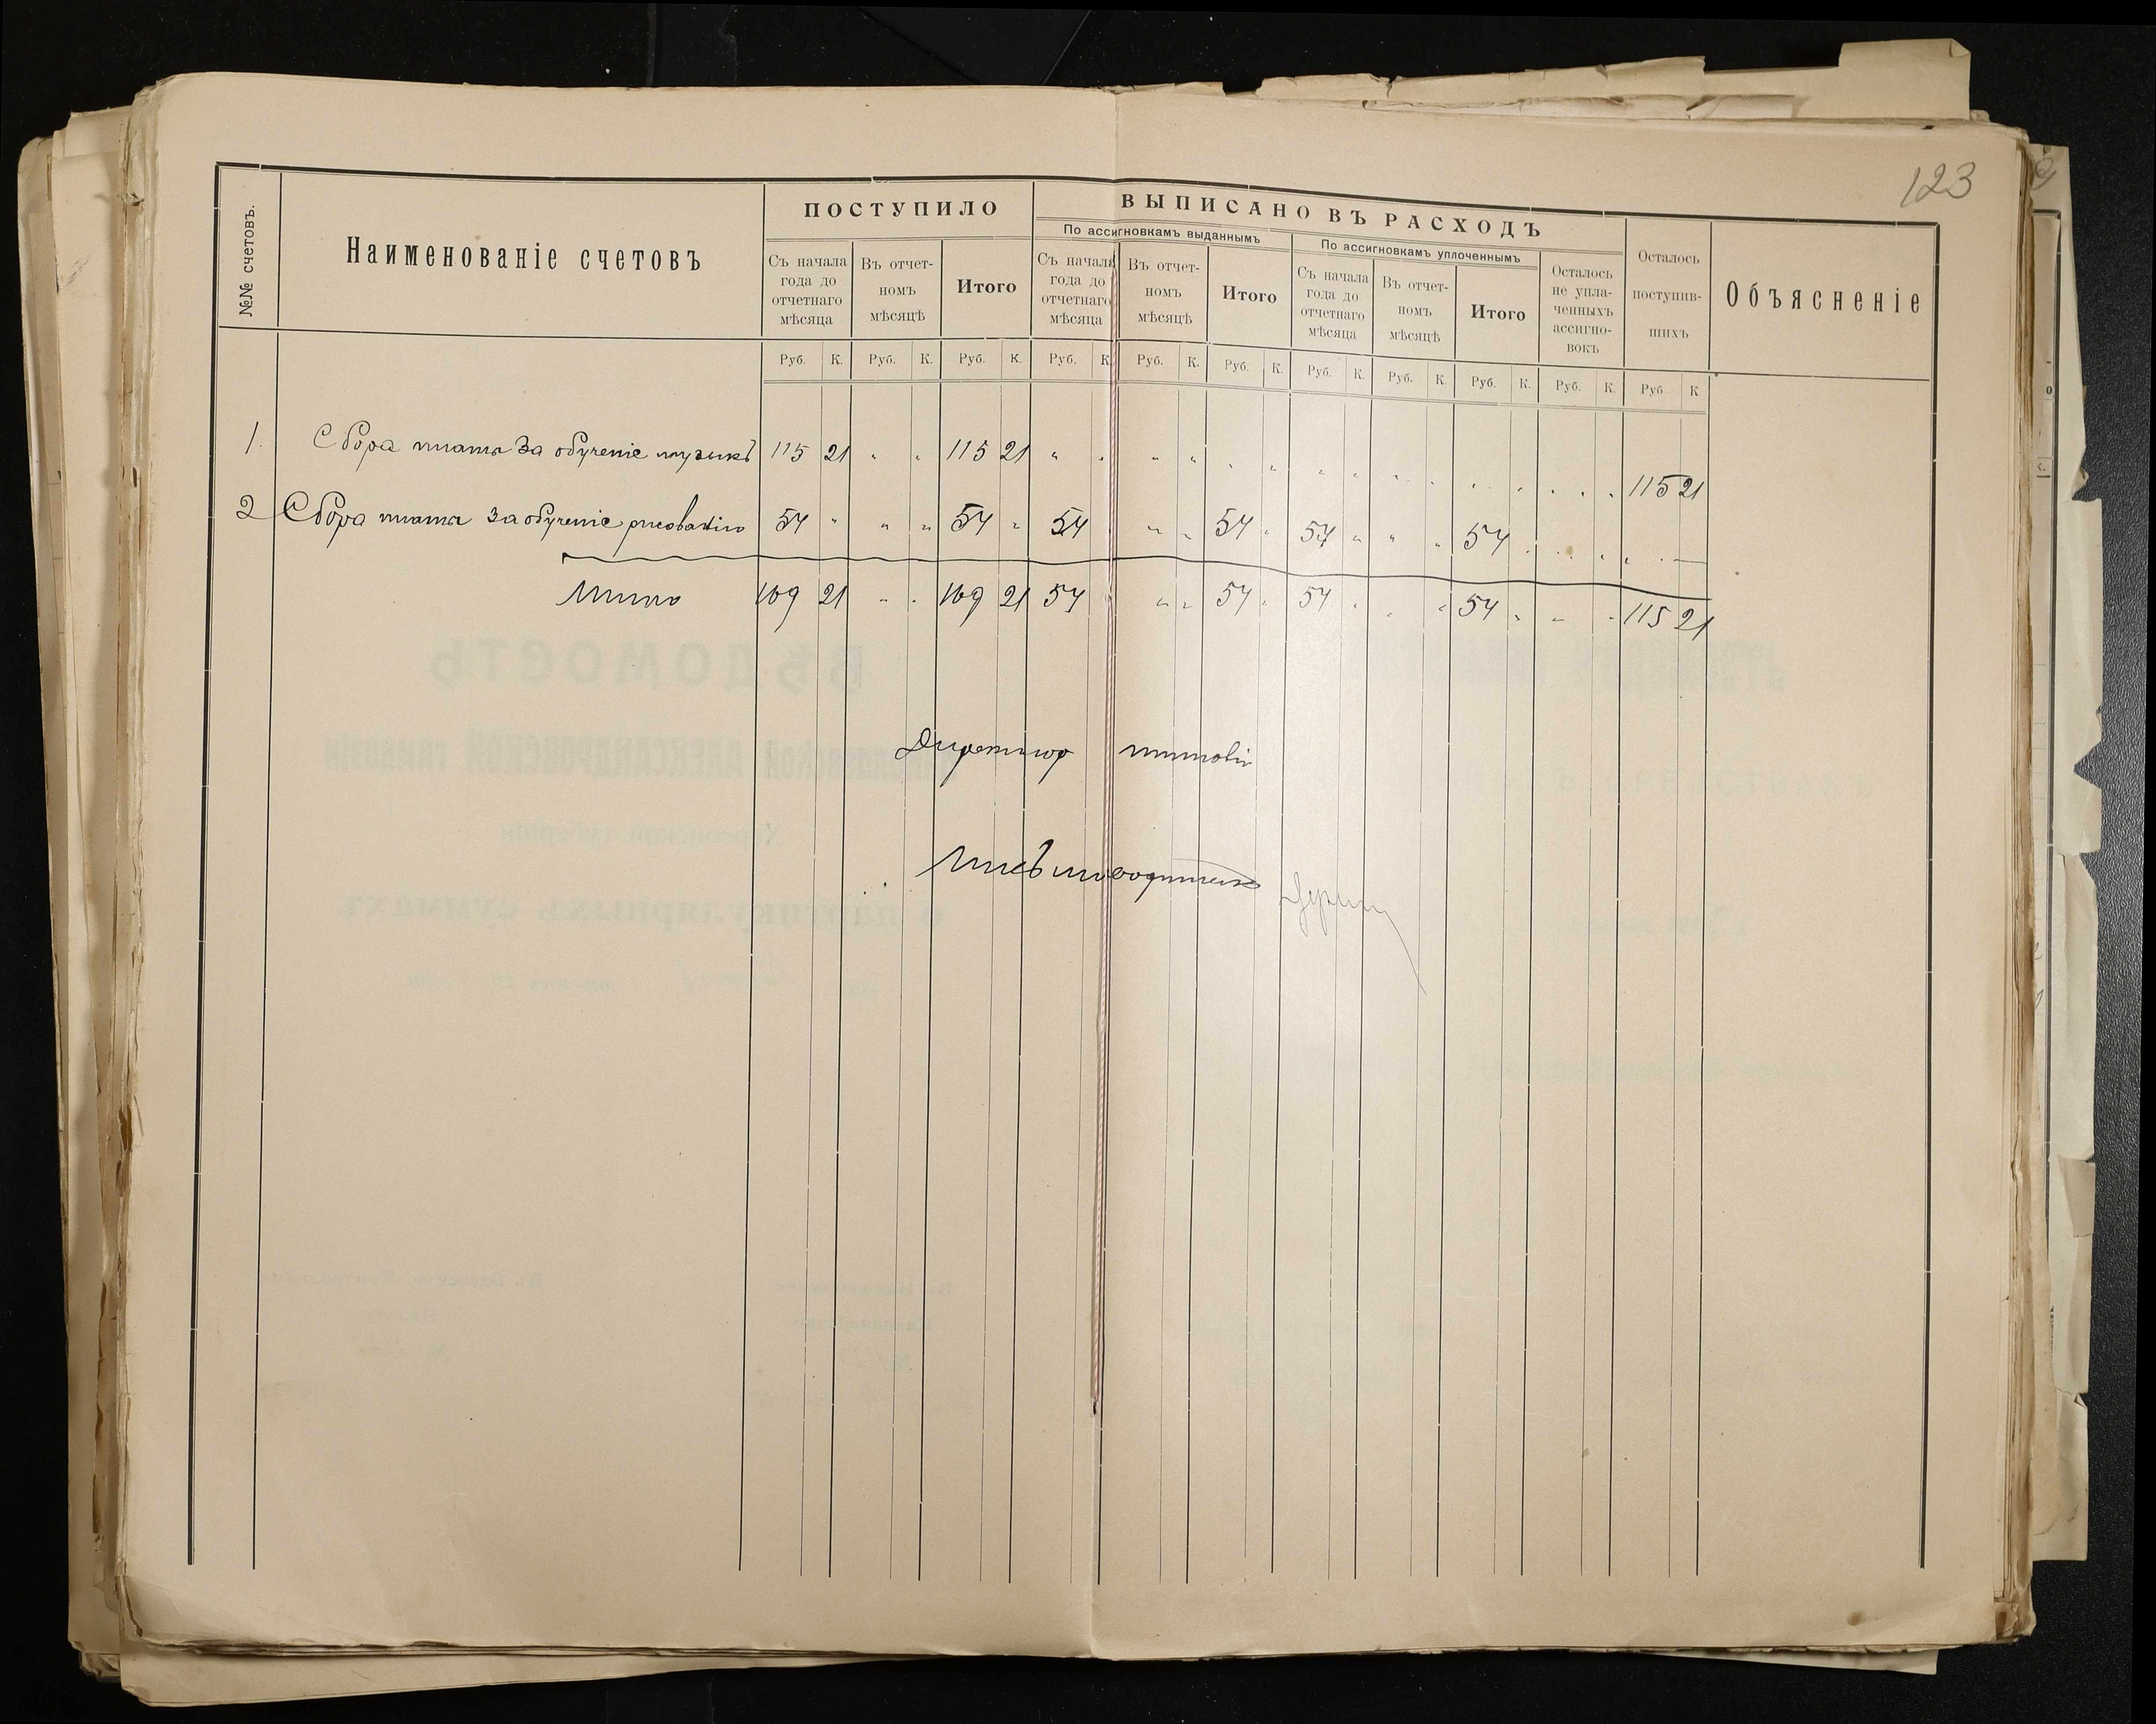 123
№№ счетовъ.
Наименованіе счетовъ
ПОСТУПИЛО
Съ начала года до отчетнаго мѣсяца
Въ отчетномъ мѣсяцѣ
Итого
ВЫПИСАНО ВЪ РАСХОДЪ
По ассигновкамъ выданнымъ
Съ начала года до отчетнаго мѣсяца
Въ отчетномъ мѣсяцѣ
Итого
По ассигновкамъ уплоченнымъ
Съ начала года до отчетнаго мѣсяца
Въ отчетномъ мѣсяцѣ
Итого
Осталось не уплаченныхъ ассигновокъ
Осталось поступившихъ
Объясненіе
Руб. К. Руб. К. Руб. К. Руб. К. Руб. К. Руб. К. Руб. К. Руб. К. Руб. К. Руб. К. Руб К
1. Сбора платы за обученіе музыкѣ 115 21 " " 115 21 " " " " " " " " " " " " " " 115 21
2 Сбора платы за обученіе рисованію 54 " " " 54 " 54 " " 54 " 54 " " " 54 " " " " —
Итого 169 21 " " 169 21 54 " " 54 " 54 " " " 54 " " " 115 21
Директор
Письмоводитель